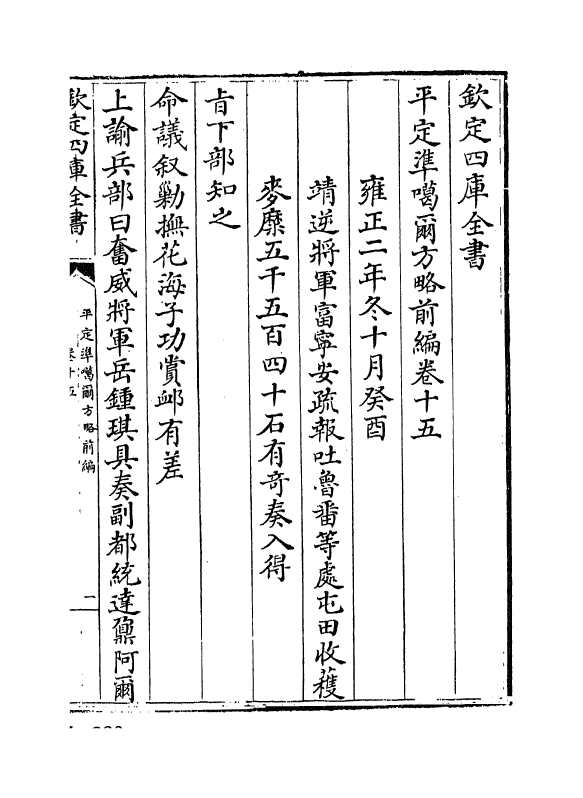 欽定四庫全書
平定準噶爾方略前編卷十五
雍正二年冬十月癸酉
靖逆將軍富寧安疏報吐魯番等處屯田收穫
麥糜五千五百四十石有奇奏入得
㫖下部知之
命議叙勦撫花海子功賞䘏有差
上諭兵部曰奮威將軍岳鍾琪具奏副都統達鼐阿爾
欽定四庫全書
平定準噶爾方略前編
卷十五
一